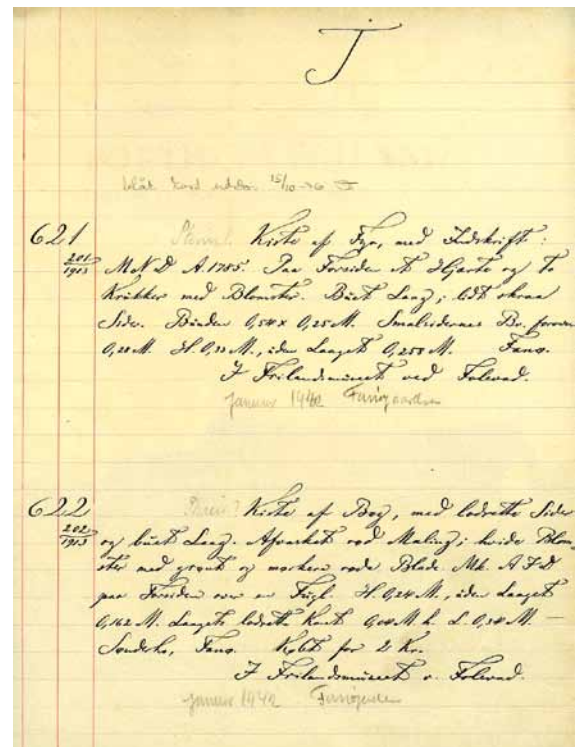 J
blåt Kort uddr. 15/10-76
621
201/1913
Skrin! Kiste af Fyr, med Indskrift:
M.N.D. A. 1755. Paa Forsiden et Hjerte og to
Krukker med Blomster. Buet Laag; lidt skraa
Sider. Bunden 0,54 x 0,25 M. Smalsidernes Br. foroven
0,28 M. H. 0,33 M., uden Laaget 0,255 M. Fanø.
I Frilandsmuseet ved Folevad.
Januar 1942 Fanøgaarden
622
202/1913
Skrin? Kiste af Bøg, med lodrette Sider
og buet Laag. Afvasket rød Maling; hvide Blom-
ster med grønt og mørkere røde Blade Mk. A F D
paa Forsiden over en Fugl. H. 0,24 M., uden Laaget
0,162 M. Laagets lodrette Kant 0,04 M. h. L. 0,34 M. —
Sønderho, Fanø. Købt for 2 Kr.
I Frilandsmuseet v. Folevad.
Januar 1942